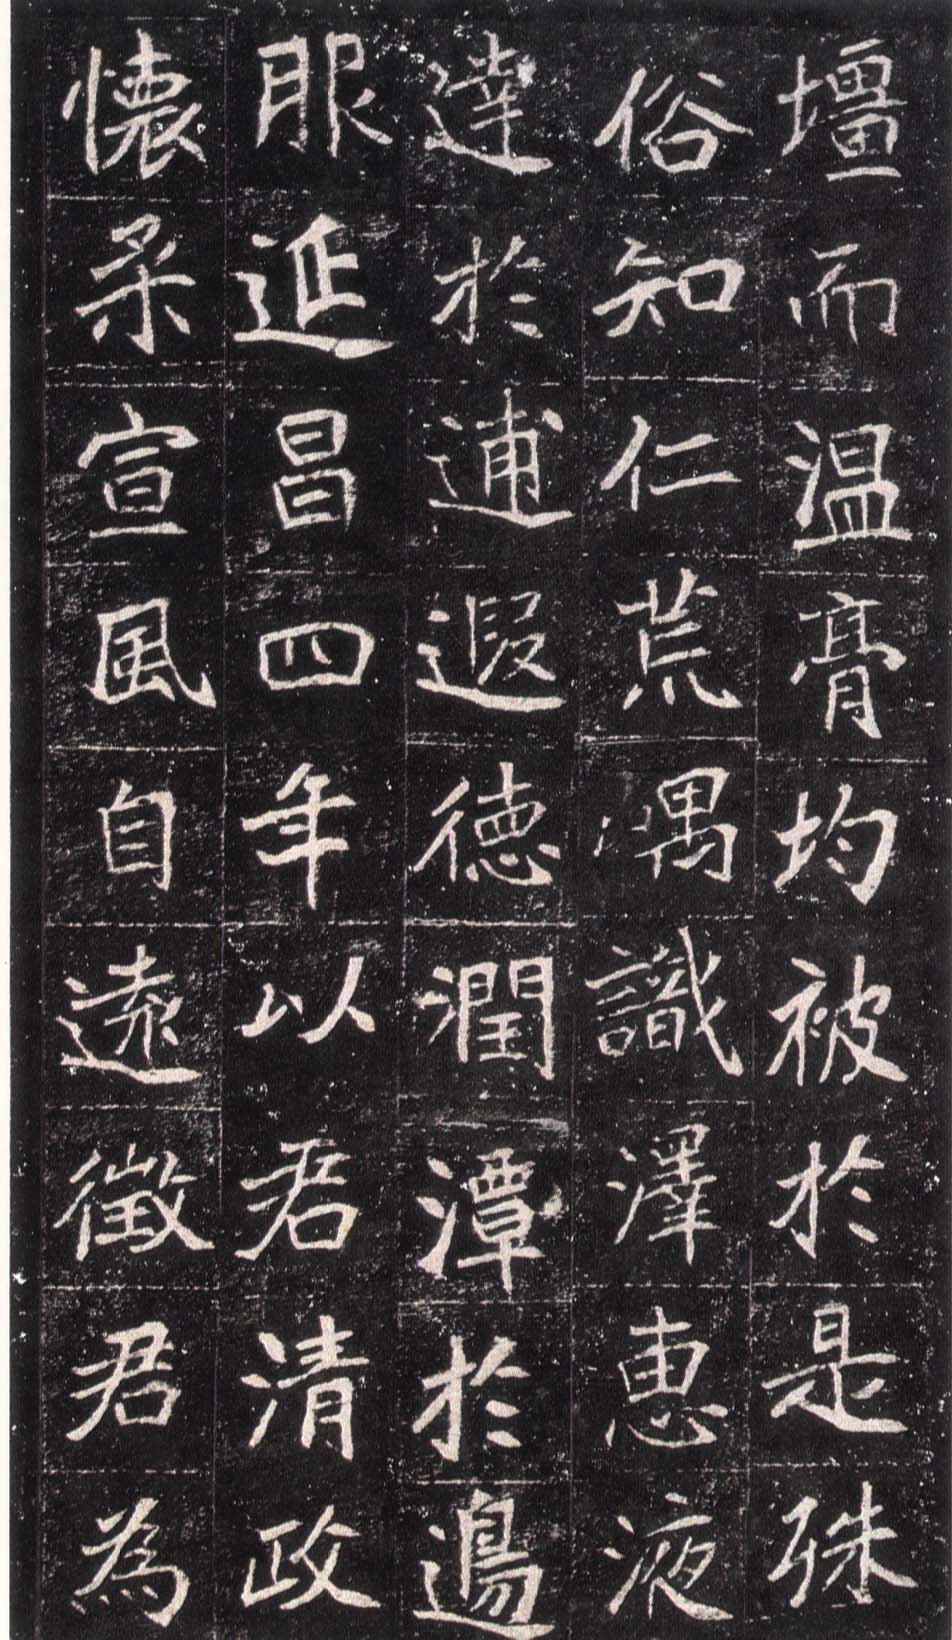 壇而温膏均被於是殊
俗知仁荒嵎識澤惠液
達於逋遐德潤潭於邊
服延昌四年以君清政
懷柔宣風自遠徵君為